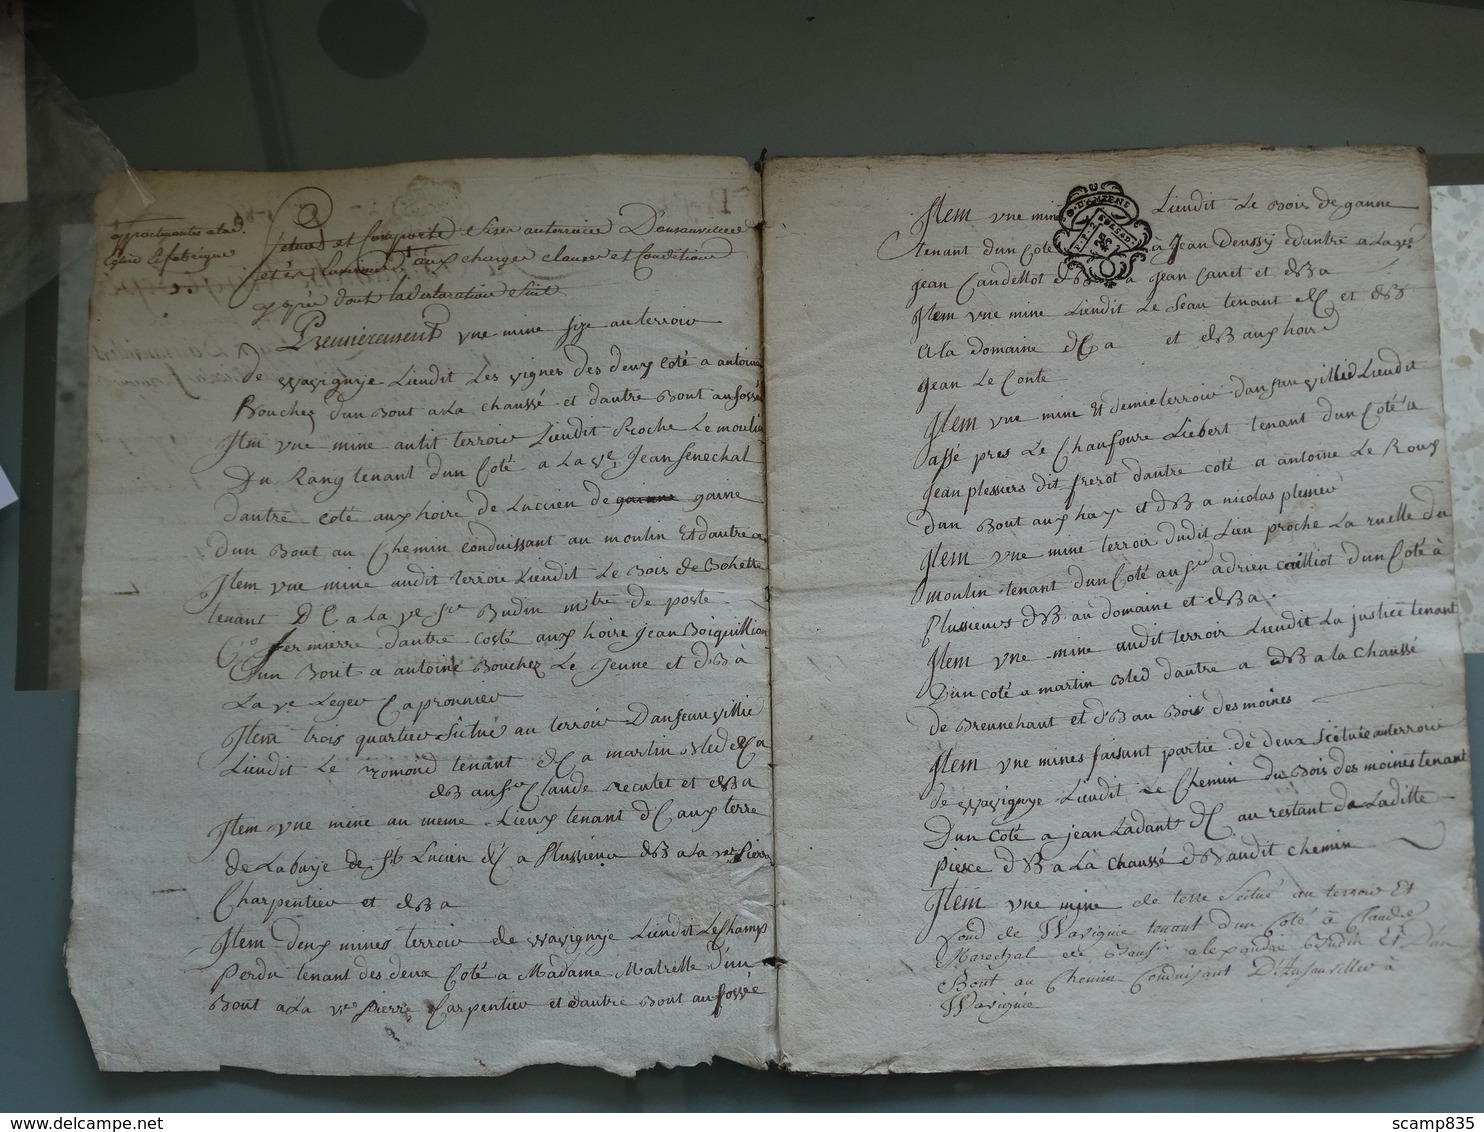 appartenantes a lad.
situés et Comporté Sises au terroir Dansauvillers
aux charges clauses et Conditions
dont la declaration Suit
Premierement une mine size au terroir
de wavignye Liendit Les vignes des deux coté a antoine
Bouchez d'un Bout a La chaussé et dautre Bout au fossé
Itm une mine audit terroir Liendit Proche Le moulin
Du Rang tenant dun Coté a La ve Jean Senechal
dautre coté aux hoire de Lucien de garinne garine
Dun Bout au Chemin Conduissant au moulin Et dautre a
Item une mine audit terroir Liendit Le Bois de Bohette
tenant D C a La ve Sr Budin mtre de poste
fermierre dautre costé aux hoire Jean Boiquillion
dun Bout a antoine Bouchez Le Jeune et d B à
La ve Leger Capronnier
Item trois quartier Situé au terroir Dansauvillié
Liendit Le romond tenant d C a martin Bled d C a
d B au Sr Claude recullet et d B a
Item une mine au meme Lieux tenant d C aux terre
de Labaye de St Lucien d C a Plussieur d B a La ve Pierre
Charpentier et d B a
Item deux mines terroir de wavignye Liendit Le Champ
Perdu tenant des deux Coté a Madame Malrelle d'un
Bout a La ve Pierre Carpentier et dautre Bout au fossée
Item une mine Liendit Le Bois de ganne
tenant dun Coté a Jean Deussy dautre a La ve
Jean Candellot d B a Jean Canet et d B a
Item une mine Liendit Le Jean tenant d C et d B
a La domaine d C a et d B aux hoire
Jean Le Conte
Item une mine et demie terroir dansauvillié Liendit
assé pres Le Chaufoure Liebert tenant dun Coté a
Jean plessiers dit frerot dautre coté a antoine Le Roux
dun Bout aux hay et d B a nicolas plessier
Item une mine terroir dudit Lieu proche La ruelle du
moulin tenant dun Coté au Sr adrien Coilliot dun Coté à
Plussieurs d B au domaine et d B a
Item une mine audit terroir Liendit La justice tenant
Dun coté a martin Bled dautre a d B a la chaussé
de Breunehaut et d B au Bois des moines
Item une mines faisant partie de deux Scituée au terroir
de wavignye Liendit Le Chemin du Bois des moines tenant
Dun Coté a jean Ladant d C au restant de Laditte
Piesce d B a La chaussé d B audit chemin
Item une mine de terre Scitué au terroir Et
fond de Wavignie tenant d'un Coté à Claude
Marechal de alexandre Budin Et d'un
Bout au Chemin Conduisant D'Ansauviller à
Wavignie
scamp835